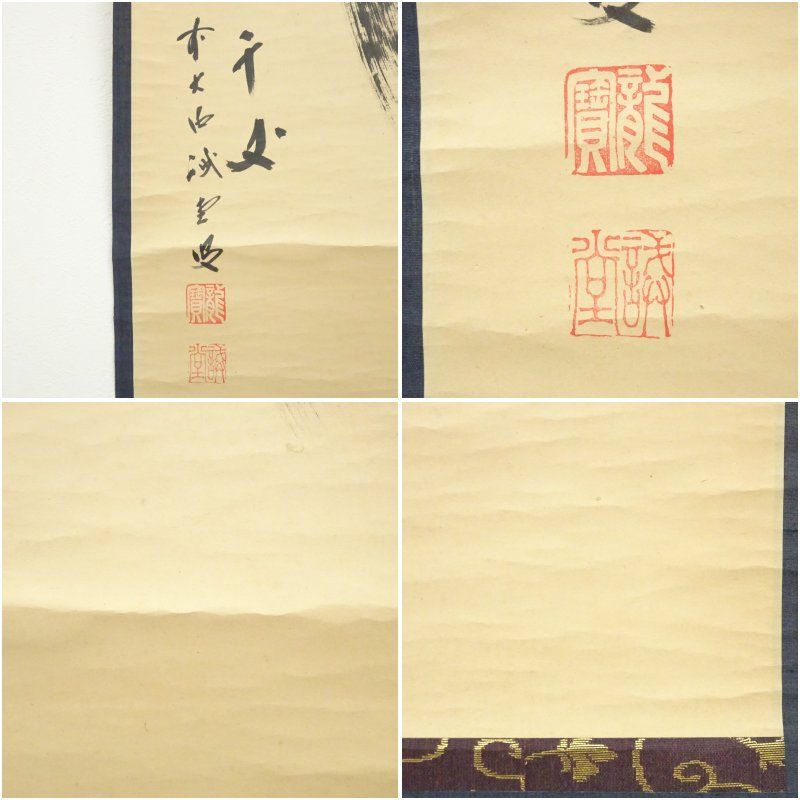 千丈
前大徳誠堂叟
龍寶
誠堂
龍寶
誠堂